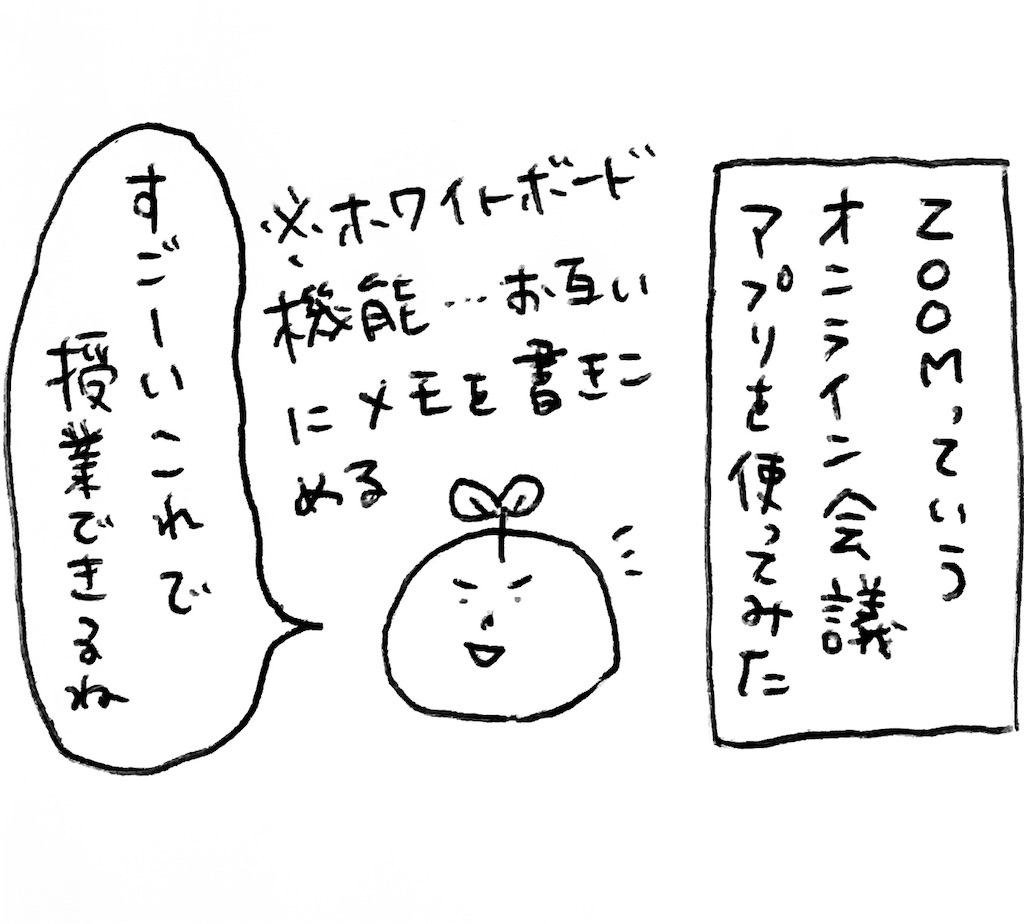 ZOOMっていう
オンライン会議
アプリを使ってみた
※ホワイトボード
機能…お互い
にメモを書きこ
める
すごーいこれで
授業できるね